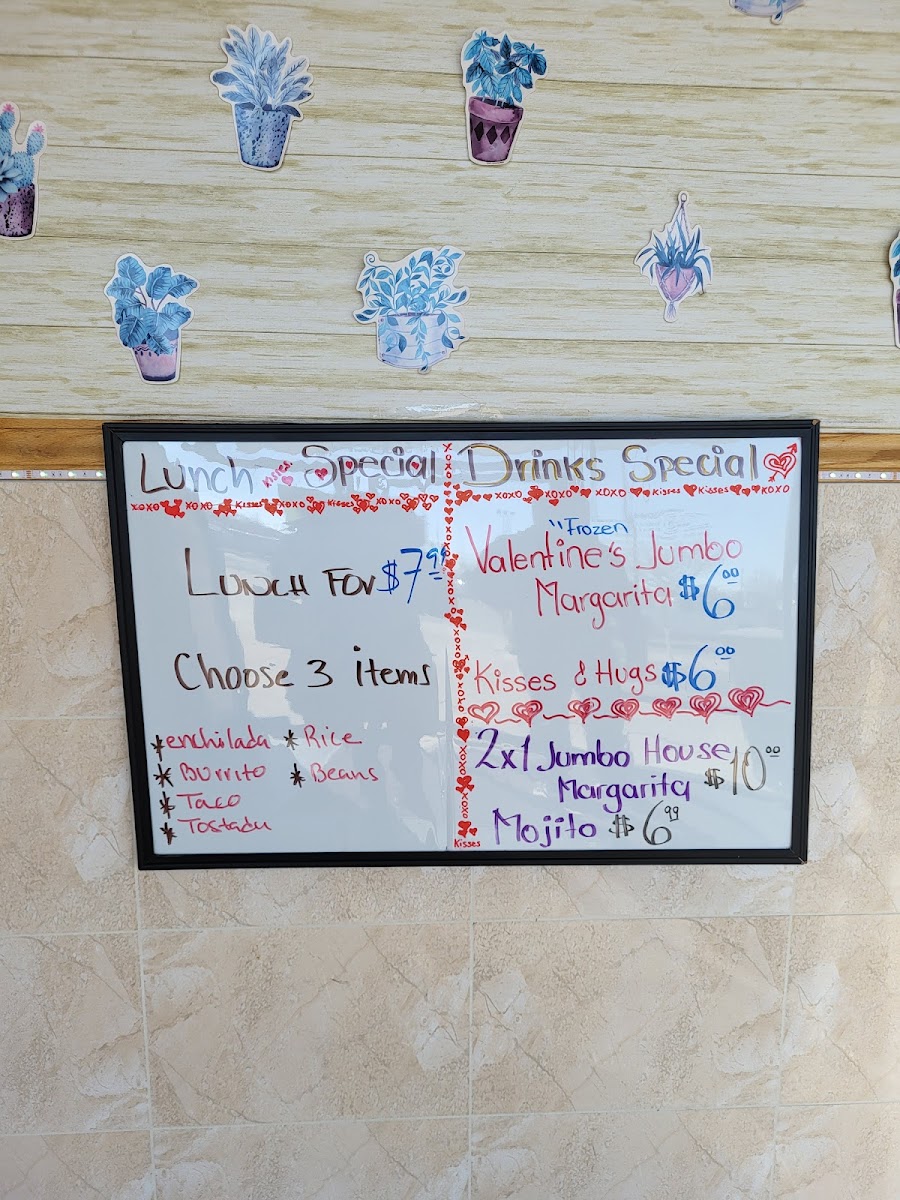 Lunch Kisses Special
xoxo xoxo Kisses xoxo Kisses xoxo
Lunch For $7.99
Choose 3 items
* enchilada * Rice
* Burrito * Beans
* Taco
* Tostada
Drinks Special
xoxo xoxo xoxo Kisses Kisses xoxo
"Frozen
Valentine's Jumbo
Margarita $6.00
Kisses & Hugs $6.00
2x1 Jumbo House
Margarita $10.00
Mojito $6.99
Kisses